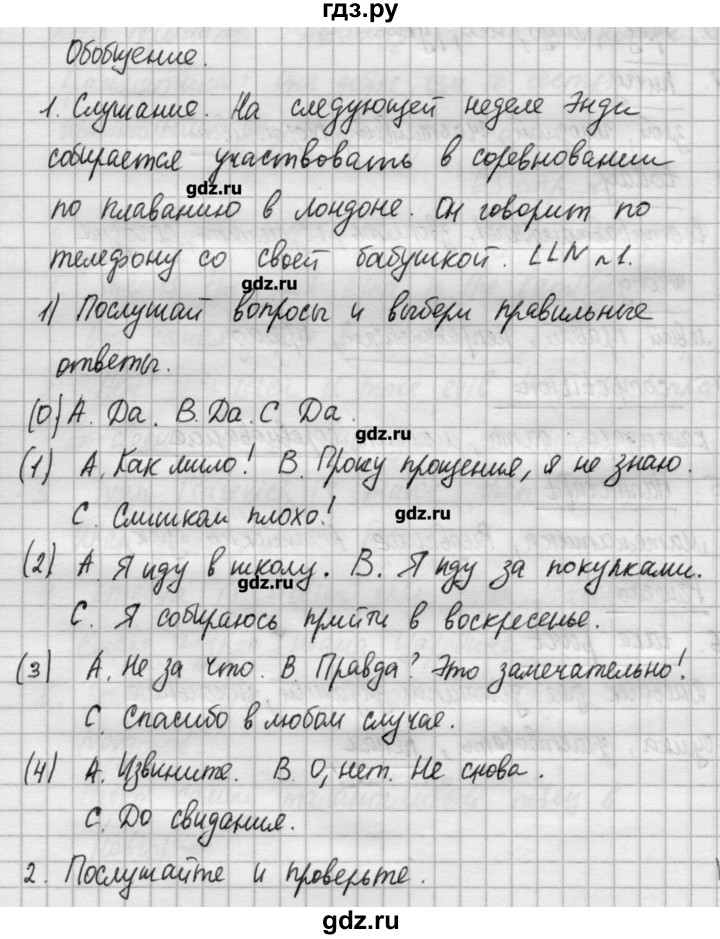 гдз.ру
Обобщение.
1. Слушание. На следующей неделе Энди
собирается участвовать в соревновании
gdz.ru
по плаванию в Лондоне. Он говорит по
телефону со своей бабушкой. LLN №1.
gdz.ru
1) Послушай вопросы и выбери правильные
ответы.
(0) A. Да. B. Да. C. Да.
gdz.ru
(1) A. Как мило! B. Прошу прощения, я не знаю.
C. Слишком плохо!
gdz.ru
(2) A. Я иду в школу. B. Я иду за покупками.
gdz.ru
C. Я собираюсь прийти в воскресенье.
(3) A. Не за что. B. Правда? Это замечательно!
gdz.ru
C. Спасибо в любом случае.
(4) A. Извините. B. О, нет. Не снова.
gdz.ru
C. До свидания.
2. Послушайте и проверьте.
gdz.ru